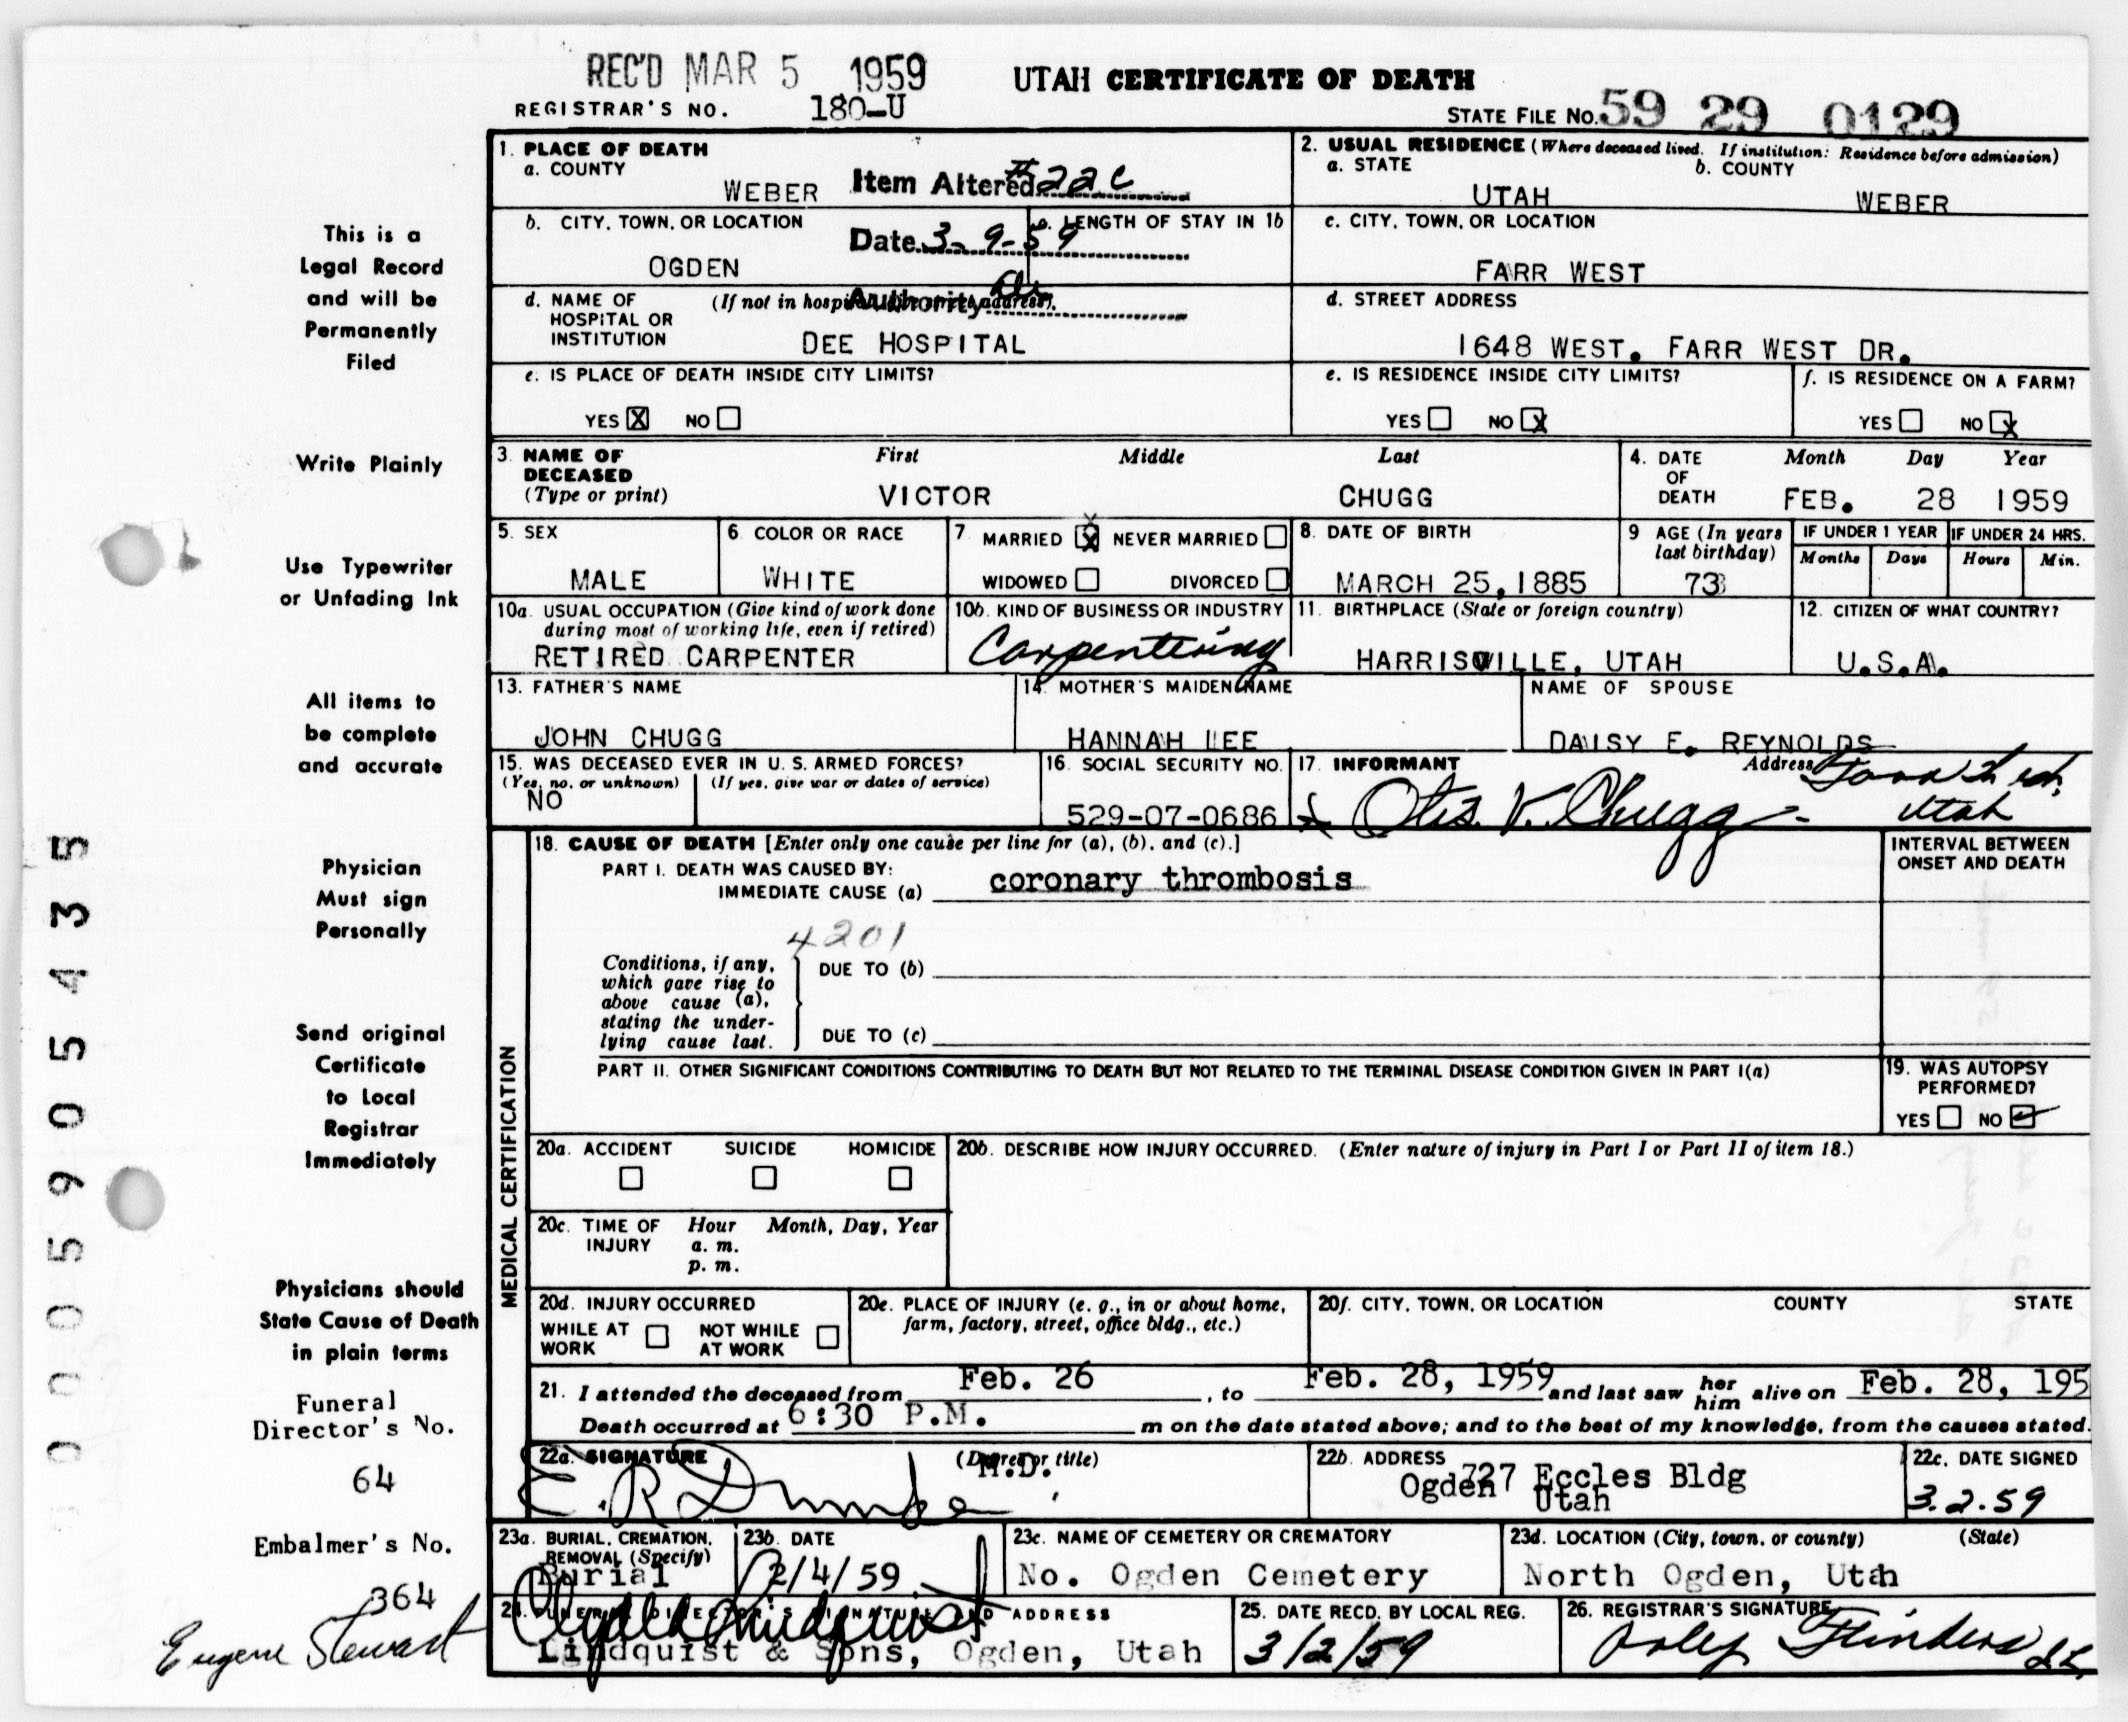 REC'D MAR 5 1959
UTAH CERTIFICATE OF DEATH
REGISTRAR'S NO. 180-U
STATE FILE NO. 59 29 0129
1. PLACE OF DEATH
a. COUNTY
WEBER
Item Altered #22c
2. USUAL RESIDENCE (Where deceased lived. If institution: Residence before admission)
a. STATE
UTAH
b. COUNTY
WEBER
b. CITY, TOWN, OR LOCATION
OGDEN
Date 3-9-59
c. LENGTH OF STAY IN 1b
c. CITY, TOWN, OR LOCATION
FARR WEST
d. NAME OF HOSPITAL OR INSTITUTION
(If not in hospital, give street address)
Authority Dr.
DEE HOSPITAL
d. STREET ADDRESS
1648 WEST. FARR WEST DR.
e. IS PLACE OF DEATH INSIDE CITY LIMITS?
YES X NO
e. IS RESIDENCE INSIDE CITY LIMITS?
YES NO X
f. IS RESIDENCE ON A FARM?
YES NO X
3. NAME OF DECEASED (Type or print)
First Middle Last
VICTOR CHUGG
4. DATE OF DEATH
Month Day Year
FEB. 28 1959
5. SEX
MALE
6. COLOR OR RACE
WHITE
7. MARRIED X NEVER MARRIED
WIDOWED DIVORCED
8. DATE OF BIRTH
MARCH 25, 1885
9. AGE (In years last birthday)
73
IF UNDER 1 YEAR
Months Days
IF UNDER 24 HRS.
Hours Min.
10a. USUAL OCCUPATION (Give kind of work done during most of working life, even if retired)
RETIRED CARPENTER
10b. KIND OF BUSINESS OR INDUSTRY
Carpentering
11. BIRTHPLACE (State or foreign country)
HARRISVILLE, UTAH
12. CITIZEN OF WHAT COUNTRY?
U.S.A.
13. FATHER'S NAME
JOHN CHUGG
14. MOTHER'S MAIDEN NAME
HANNAH LEE
NAME OF SPOUSE
DAISY E. REYNOLDS
15. WAS DECEASED EVER IN U. S. ARMED FORCES?
(Yes, no, or unknown) (If yes, give war or dates of service)
NO
16. SOCIAL SECURITY NO.
529-07-0686
17. INFORMANT
Otis V. Chugg
Address
Utah
18. CAUSE OF DEATH [Enter only one cause per line for (a), (b), and (c).]
PART I. DEATH WAS CAUSED BY:
IMMEDIATE CAUSE (a) coronary thrombosis
INTERVAL BETWEEN ONSET AND DEATH
4201
Conditions, if any, which gave rise to above cause (a), stating the underlying cause last.
DUE TO (b)
DUE TO (c)
PART II. OTHER SIGNIFICANT CONDITIONS CONTRIBUTING TO DEATH BUT NOT RELATED TO THE TERMINAL DISEASE CONDITION GIVEN IN PART I(a)
19. WAS AUTOPSY PERFORMED?
YES NO ✓
MEDICAL CERTIFICATION
20a. ACCIDENT SUICIDE HOMICIDE
20b. DESCRIBE HOW INJURY OCCURRED. (Enter nature of injury in Part I or Part II of item 18.)
20c. TIME OF INJURY
Hour Month, Day, Year
a. m.
p. m.
20d. INJURY OCCURRED
WHILE AT WORK NOT WHILE AT WORK
20e. PLACE OF INJURY (e. g., in or about home, farm, factory, street, office bldg., etc.)
20f. CITY, TOWN, OR LOCATION COUNTY STATE
21. I attended the deceased from Feb. 26, to Feb. 28, 1959 and last saw her him alive on Feb. 28, 195
Death occurred at 6:30 P.M. m on the date stated above; and to the best of my knowledge, from the causes stated.
22a. SIGNATURE (Degree or title)
E. R. Dumke M.D.
22b. ADDRESS
727 Eccles Bldg
Ogden Utah
22c. DATE SIGNED
3.2.59
23a. BURIAL, CREMATION, REMOVAL (Specify)
Burial
23b. DATE
2/4/59
23c. NAME OF CEMETERY OR CREMATORY
No. Ogden Cemetery
23d. LOCATION (City, town, or county) (State)
North Ogden, Utah
24. FUNERAL DIRECTOR'S SIGNATURE AND ADDRESS
Clyde Lindquist
Lindquist & Sons, Ogden, Utah
25. DATE RECD. BY LOCAL REG.
3/2/59
26. REGISTRAR'S SIGNATURE
Flinders
This is a
Legal Record
and will be
Permanently
Filed
Write Plainly
Use Typewriter
or Unfading Ink
All items to
be complete
and accurate
Physician
Must sign
Personally
Send original
Certificate
to Local
Registrar
Immediately
Physicians should
State Cause of Death
in plain terms
Funeral
Director's No.
64
Embalmer's No.
364
Eugene Stewart
000595435